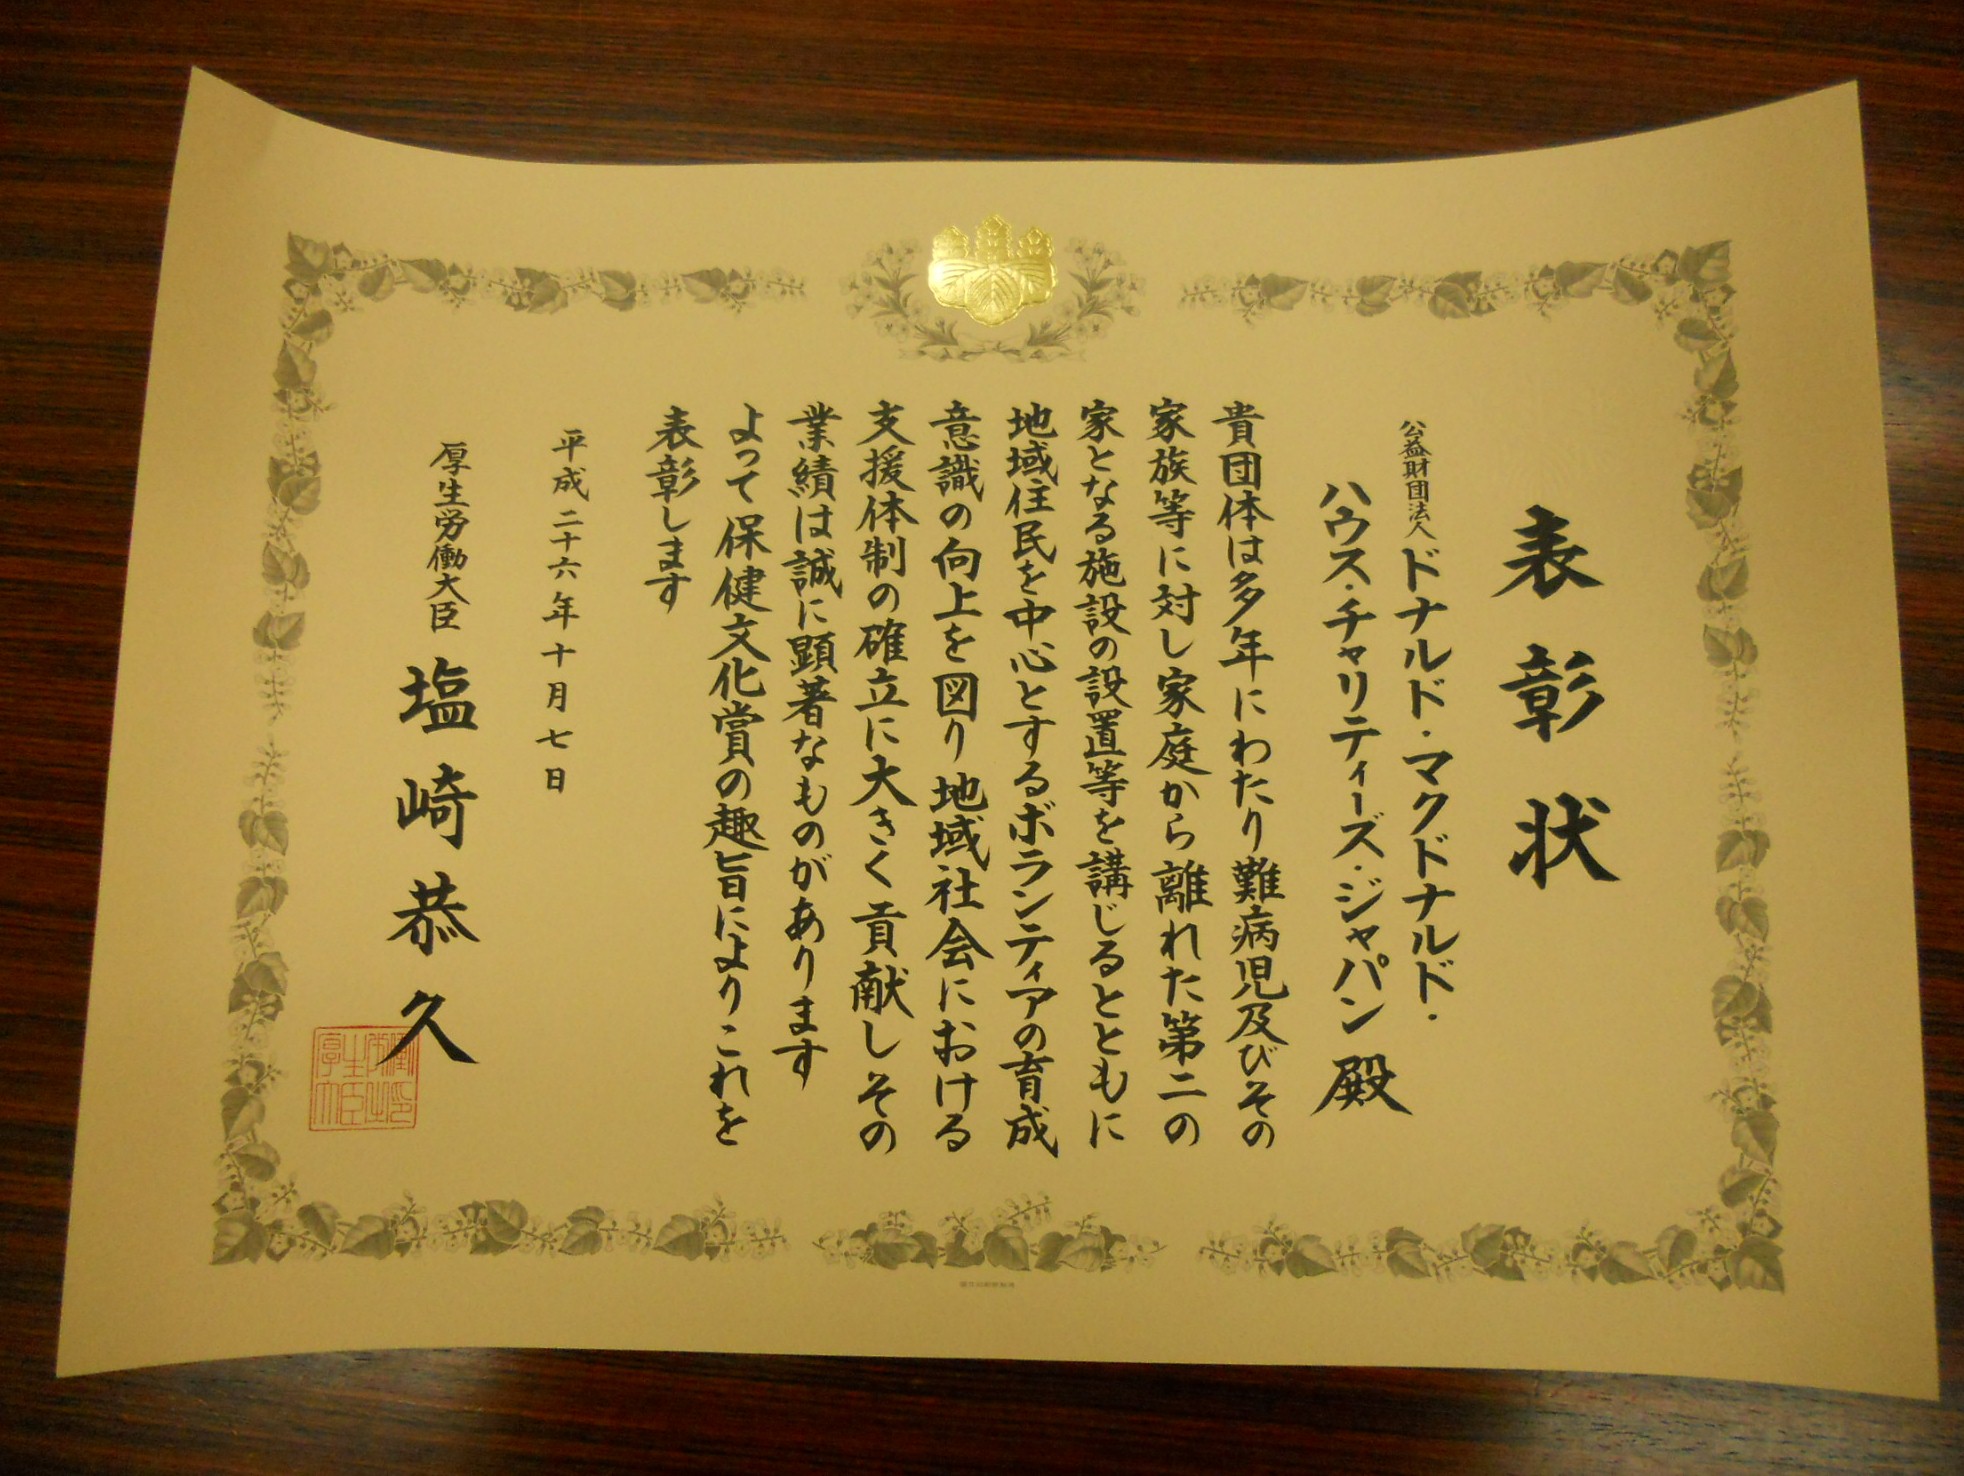 表彰状
公益財団法人ドナルド・マクドナルド・
ハウス・チャリティーズ・ジャパン殿
貴団体は多年にわたり難病児及びその
家族等に対し家庭から離れた第二の
家となる施設の設置等を講じるとともに
地域住民を中心とするボランティアの育成
意識の向上を図り地域社会における
支援体制の確立に大きく貢献しその
業績は誠に顕著なものがあります
よって保健文化賞の趣旨によりこれを
表彰します
平成二十六年十月七日
厚生労働大臣 塩崎恭久